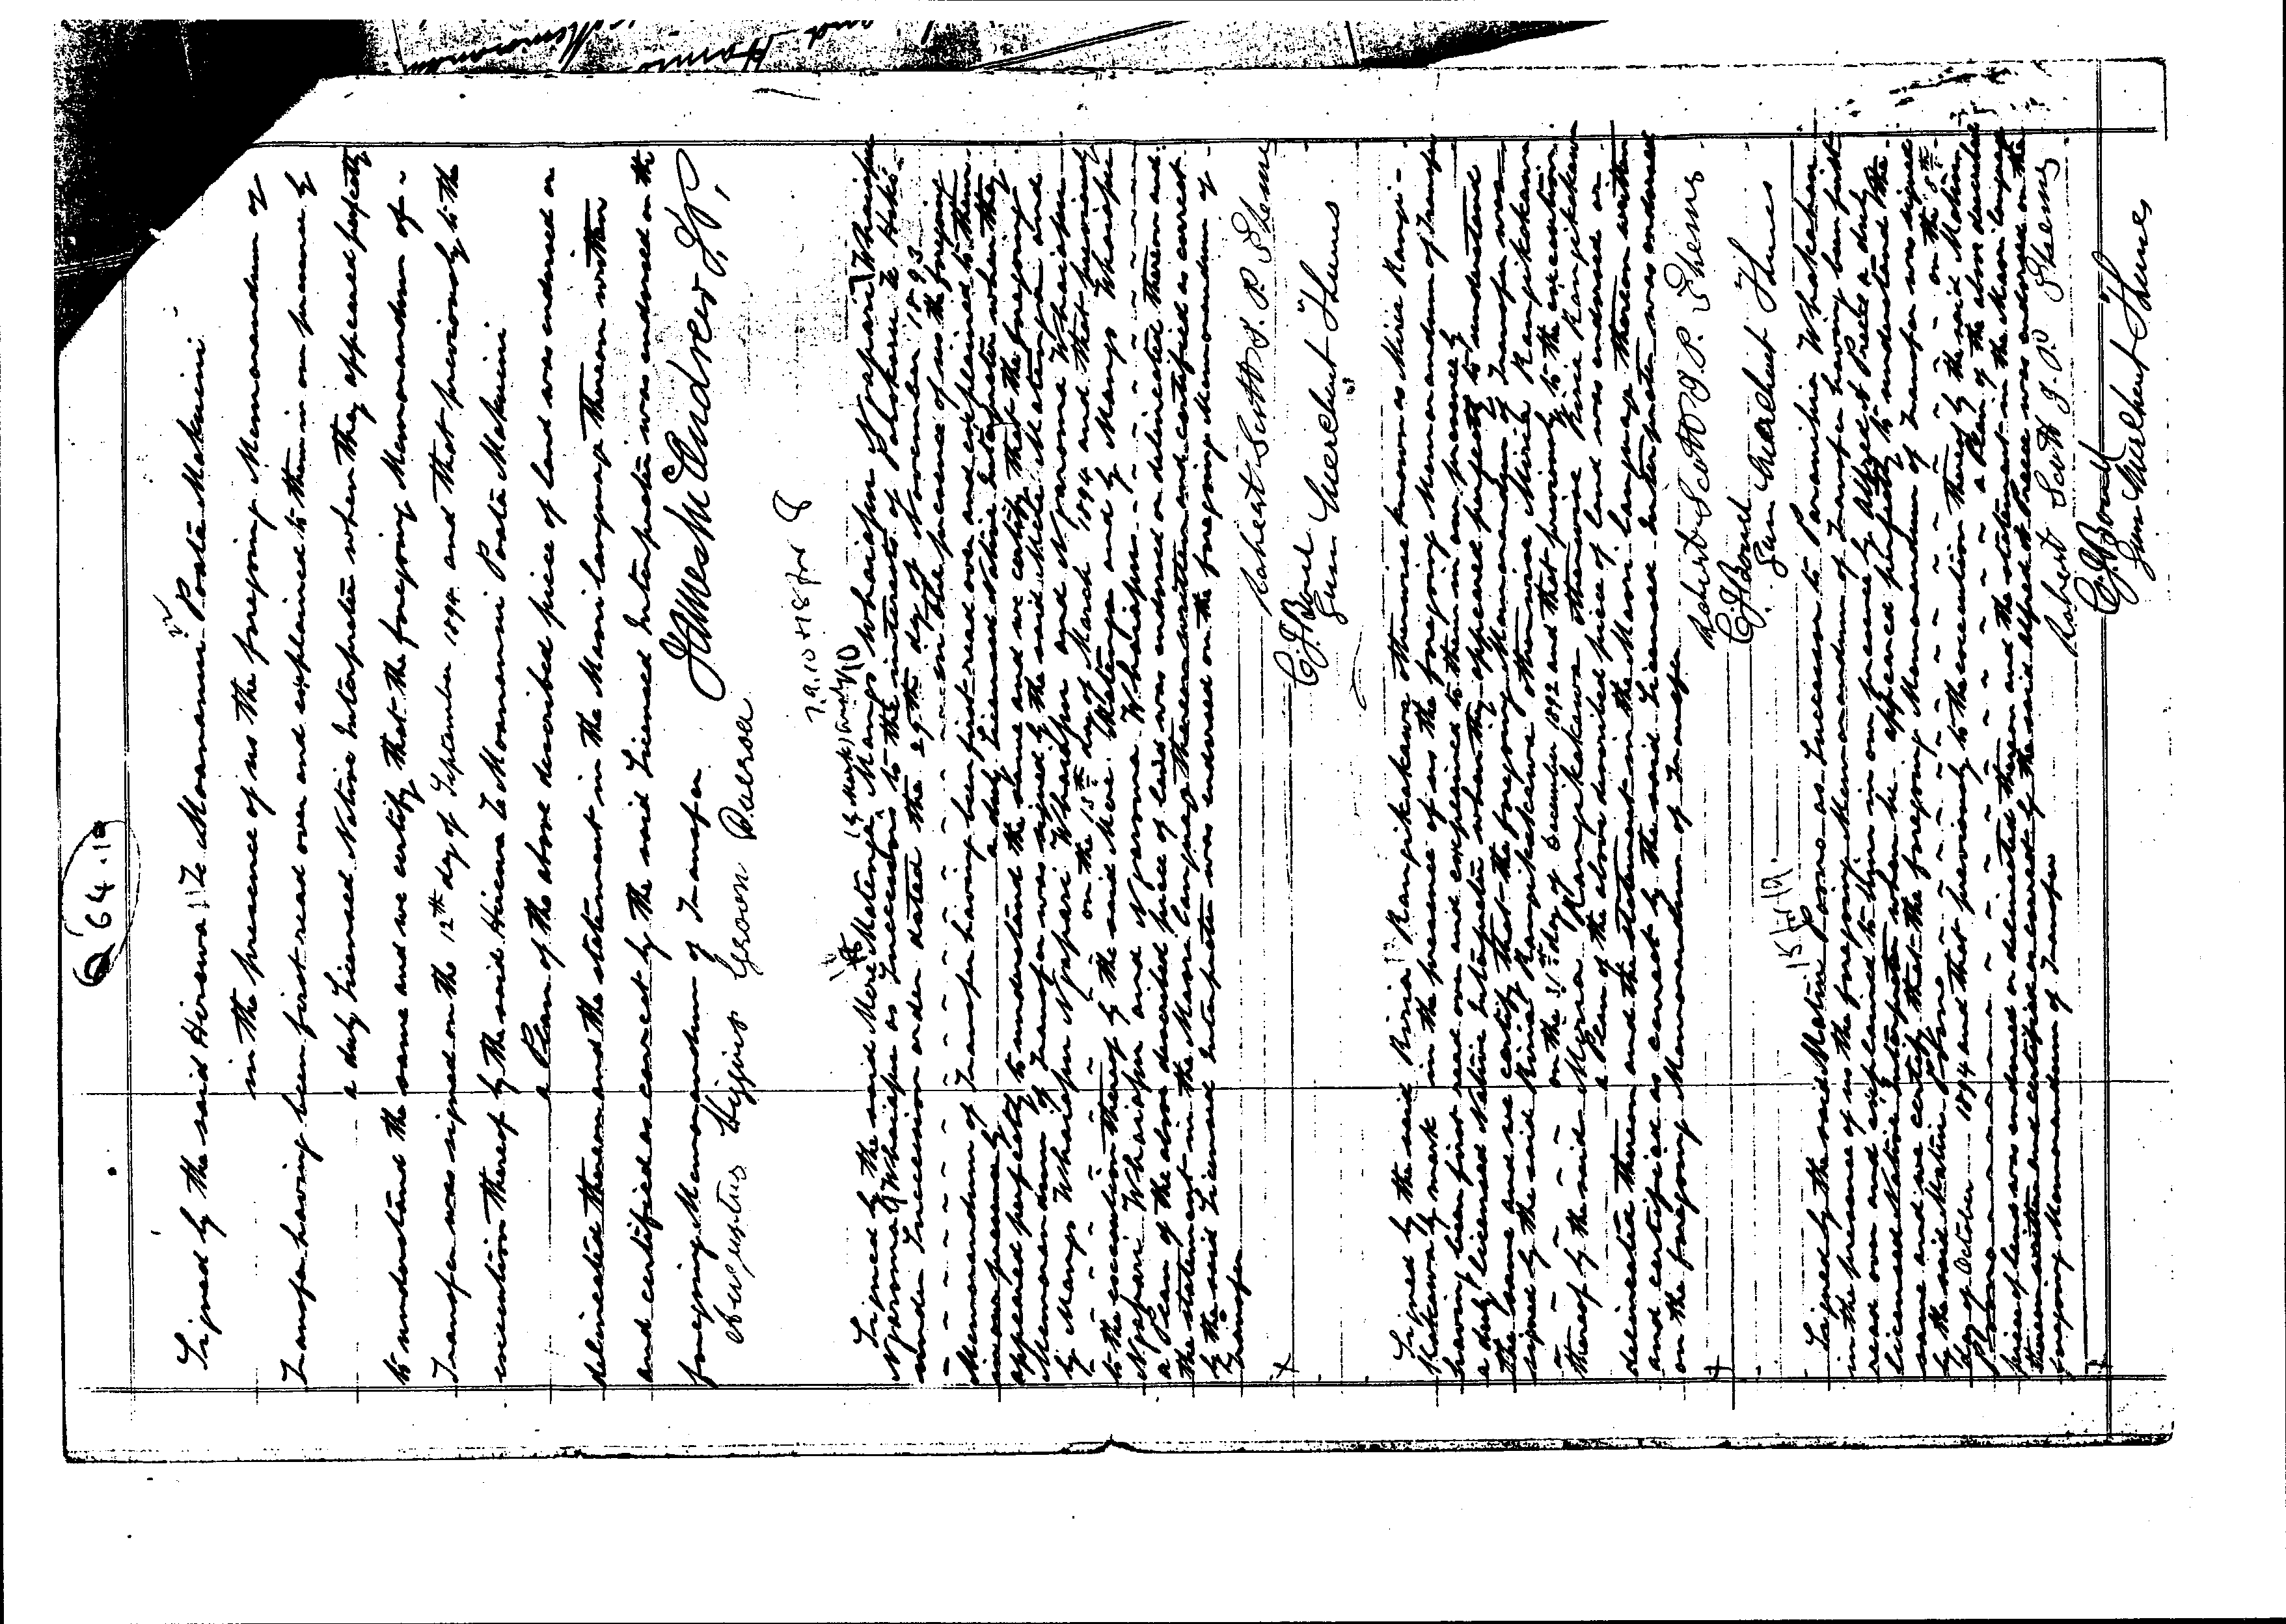 64.19
Signed by the said Hirawa Te Moananui Poata Makuini
in the presence of us the foregoing Memorandum of
Transfer having been first read over and explained to them in our presence by
a duly Licensed Native Interpreter when they appeared perfectly
to understand the same and we certify that the foregoing Memorandum of
Transfer was signed on the 12th day of September 1894 and that previously to the
execution thereof by the said Hirawa Te Moananui Poata Makuini
a Plan of the above described piece of land was endorsed or
delineated thereon and the statement in the Maori language thereon written
and certified as correct by the said Licensed Interpreter was endorsed on the
foregoing Memorandum of Transfer
James McAndrew J.P.
Augustus Higgins Groom Paeroa
Signed by the said Mere Matenga Mango Whaiapu Ngapari Whaiapu
Ngaroma Whaiapu as Successors to the interests of
under Succession order dated the 29th day of November 1893
in the presence of us the foregoing
Memorandum of Transfer having been first read over and explained to them
in our presence by a duly Licensed Native Interpreter when they
appeared perfectly to understand the same and we certify that the foregoing
Memorandum of Transfer was signed by the said Mere Matenga and
by Mango Whaiapu Ngapari Whaiapu and Ngaroma Whaiapu
on the 15th day of March 1894 and that previously
to the execution thereof by the said Mere Matenga and by Mango Whaiapu
Ngapari Whaiapu and Ngaroma Whaiapu
a Plan of the above described piece of land was endorsed or delineated thereon and
the statement in the Maori language thereon written and certified as correct
by the said Licensed Interpreter was endorsed on the foregoing Memorandum of
Transfer
Robert Scott J.P. Thames
Gum Merchant Thames
Signed by the said Kiria Rangikekawa otherwise known as Mirea Rangi-
kekawa by mark in the presence of us the foregoing Memorandum of Transfer
having been first read over and explained to them in our presence by
a duly licensed Native Interpreter when they appeared perfectly to understand
the same and we certify that the foregoing Memorandum of Transfer was
signed by the said Kiria Rangikekawa otherwise Mirea Rangikekawa
on the 31st day of December 1892 and that previously to the execution
thereof by the said Rangikekawa otherwise Rangikekawa
a Plan of the above described piece of land was endorsed or
delineated thereon and the statement in the Maori language thereon written
and certified as correct by the said Licensed Interpreter was endorsed
on the foregoing Memorandum of Transfer
Robert Scott J.P. Thames
Gum Merchant Thames
Signed by the said Matiu Pono as Successor to Paranihia Whakahau
in the presence of us the foregoing Memorandum of Transfer having been first
read over and explained to him in our presence by Alfred J Preece a duly
licensed Native Interpreter when he appeared perfectly to understand the
same and we certify that the foregoing Memorandum of Transfer was signed
by the said Matiu Pono on the 8th
day of October 1894 and that previously to the execution thereof by the said Matiu
Pono a Plan of the above described
piece of land was endorsed or delineated thereon and the statement in the Maori language
thereon written and certified as correct by the said Alfred J Preece was endorsed on the
foregoing Memorandum of Transfer
Robert Scott J.P. Thames
Gum Merchant Thames